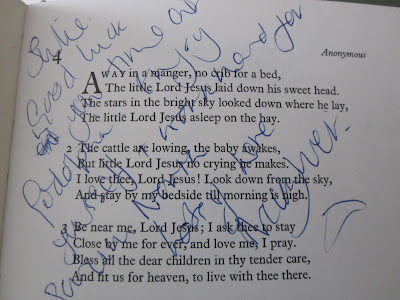 Julie
Good luck
time out
enjoy
and for
love
4
Anonymous
AWAY in a manger, no crib for a bed,
The little Lord Jesus laid down his sweet head.
The stars in the bright sky looked down where he lay,
The little Lord Jesus asleep on the hay.
2 The cattle are lowing, the baby awakes,
But little Lord Jesus no crying he makes.
I love thee, Lord Jesus! Look down from the sky,
And stay by my bedside till morning is nigh.
3 Be near me, Lord Jesus; I ask thee to stay
Close by me for ever, and love me, I pray.
Bless all the dear children in thy tender care,
And fit us for heaven, to live with thee there.